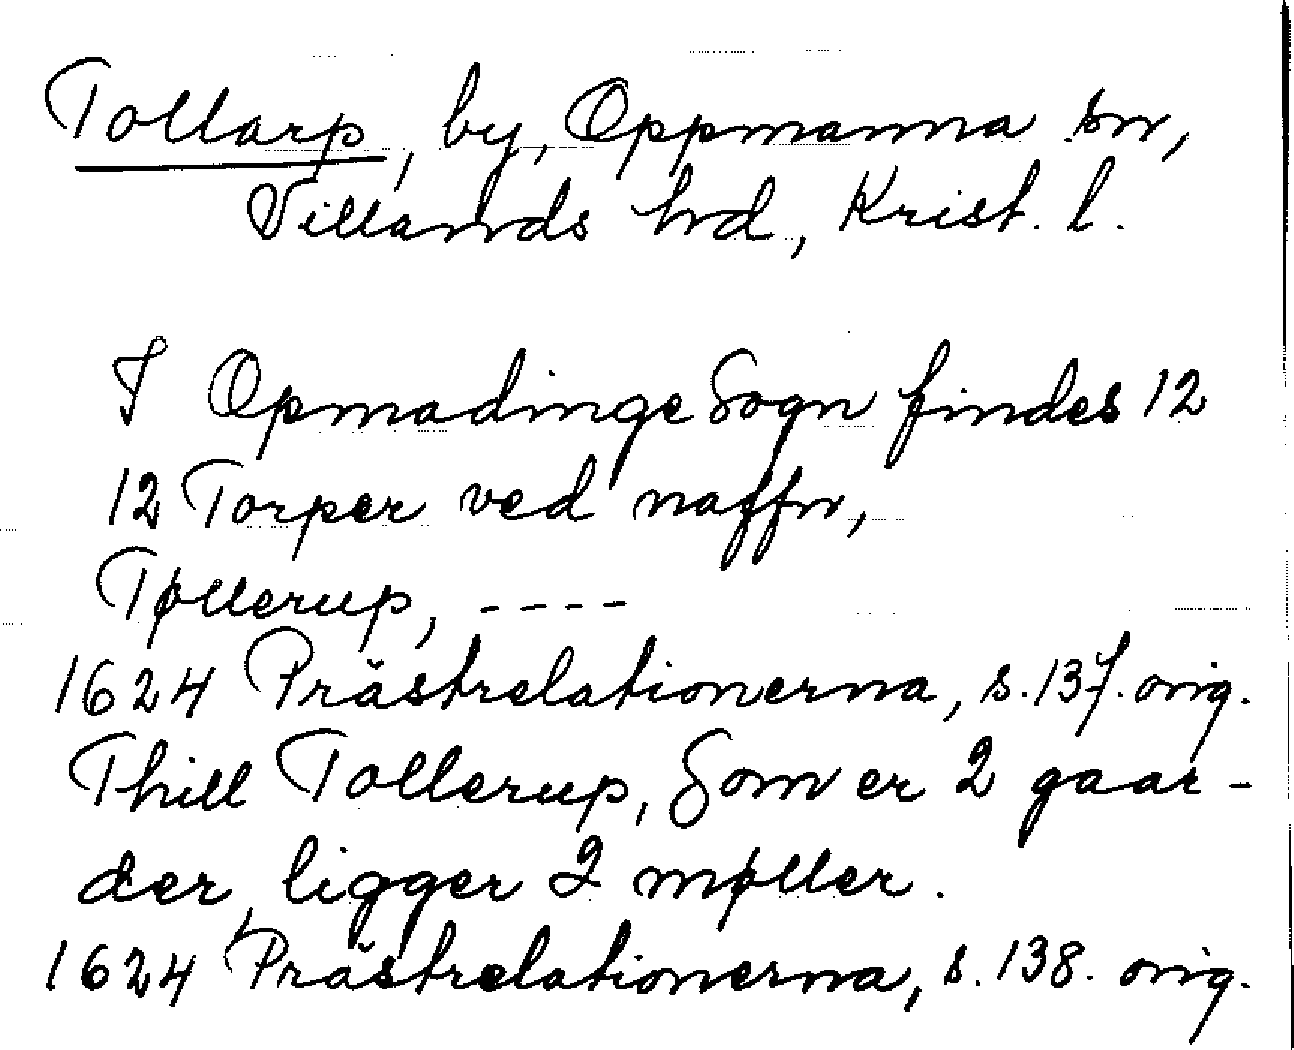 Tollarp, by, Oppmanna sn,
Villands hd, Krist. l.
I Opmadinge Sogn findes 12
12 Torper ved naffn,
Tøllerup, ----
1624 Prästrelationerna, s. 137. orig.
Thill Tollerup, Som er 2 gaar-
der, ligger 2 møller.
1624 Prästrelationerna, s. 138. orig.